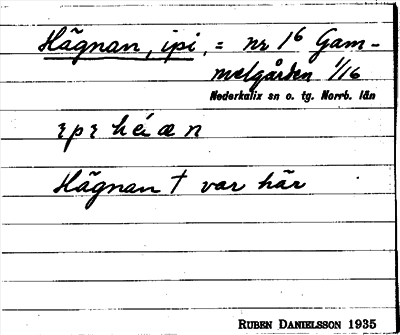 Hägnan, ipi, = nr 1⁶ Gam-
melgården 1/16
Nederkalix sn o. tg. Norrb. län
Hägnan † var här
RUBEN DANIELSSON 1935